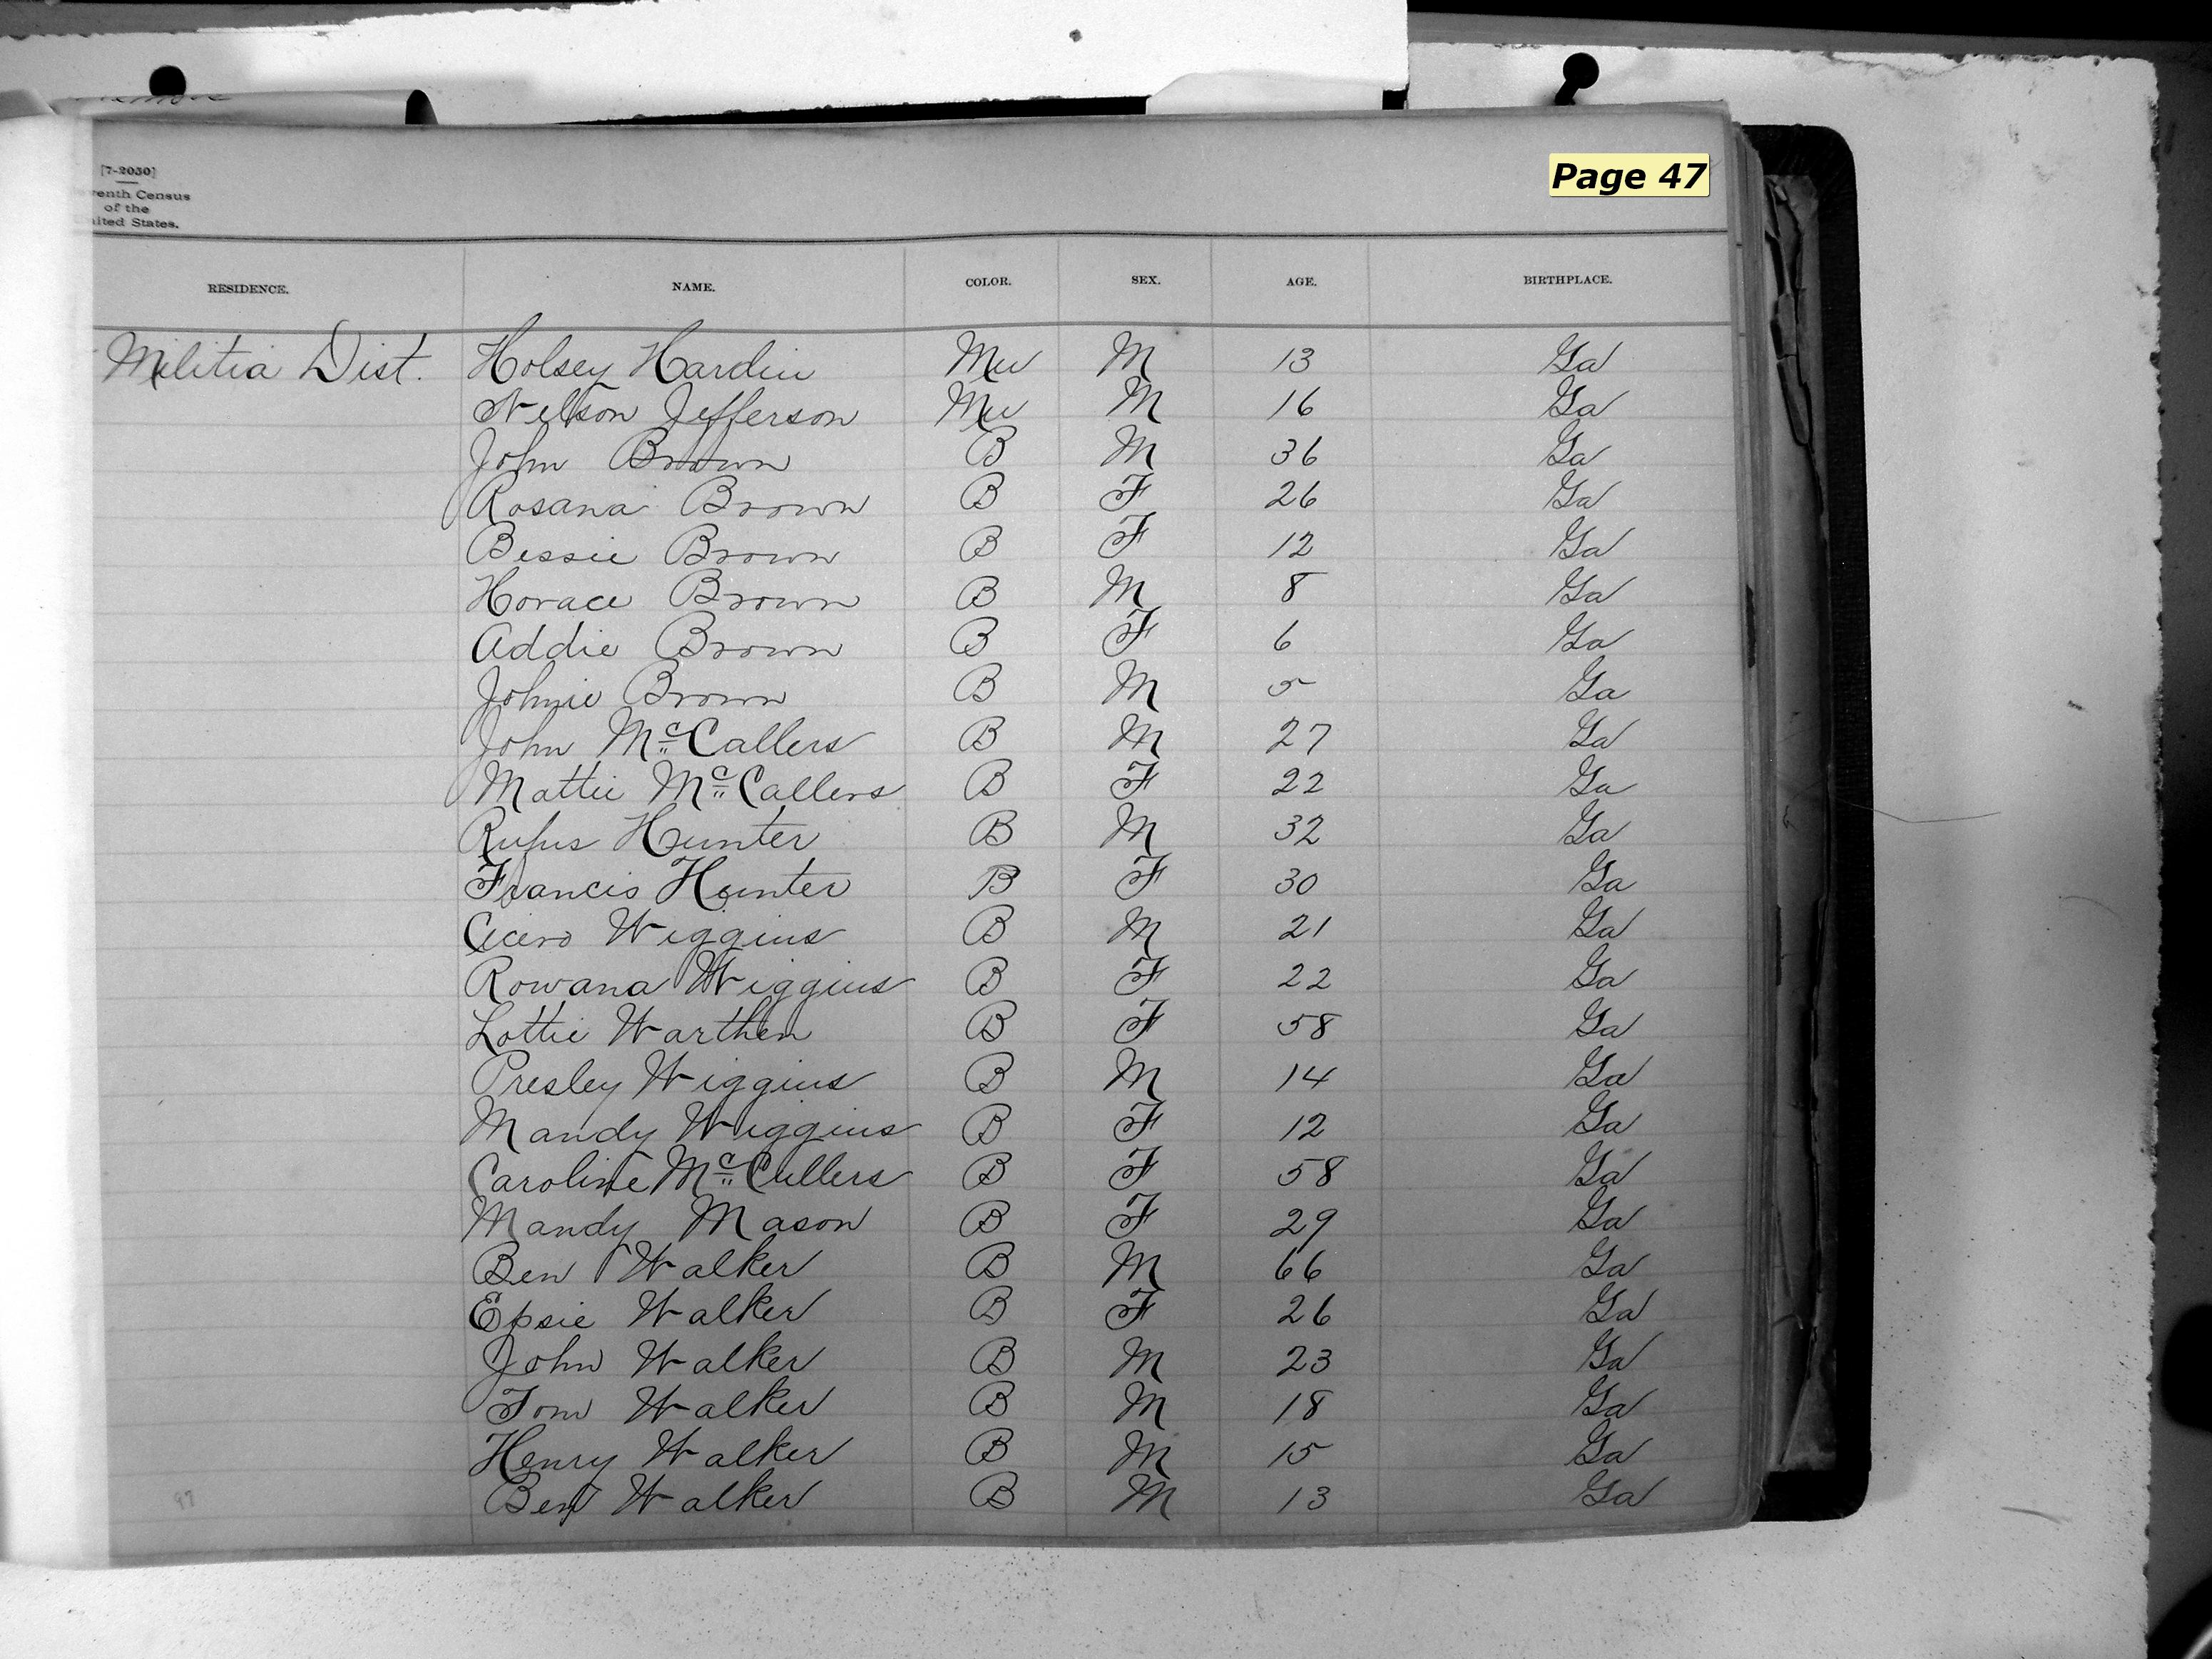 [7-2030]
Page 47
enth Census
of the
ited States.
RESIDENCE. NAME. COLOR. SEX. AGE. BIRTHPLACE.
Militia Dist. Holsey Hardin Mu M 13 Ga
Nelson Jefferson Mu M 16 Ga
John Brown B M 36 Ga
Rosana Brown B F 26 Ga
Bessie Brown B F 12 Ga
Horace Brown B M 8 Ga
Addie Brown B F 6 Ga
Johnie Brown B M 5 Ga
John McCallers B M 27 Ga
Mattie McCallers B F 22 Ga
Rufus Hunter B M 32 Ga
Francis Hunter B F 30 Ga
Cicero Wiggins B M 21 Ga
Rowana Wiggins B F 22 Ga
Lottie Warthen B F 58 Ga
Presley Wiggins B M 14 Ga
Mandy Wiggins B F 12 Ga
Caroline McCullers B F 58 Ga
Mandy Mason B F 29 Ga
Ben Walker B M 66 Ga
Epsie Walker B F 26 Ga
John Walker B M 23 Ga
Tom Walker B M 18 Ga
Henry Walker B M 15 Ga
Ben Walker B M 13 Ga